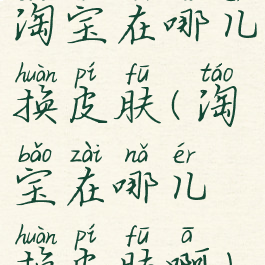 淘宝在哪儿
huàn pí fū táo
换皮肤(淘
bǎo zài nǎ ér
宝在哪儿
huàn pí fū ā
换皮肤啊)